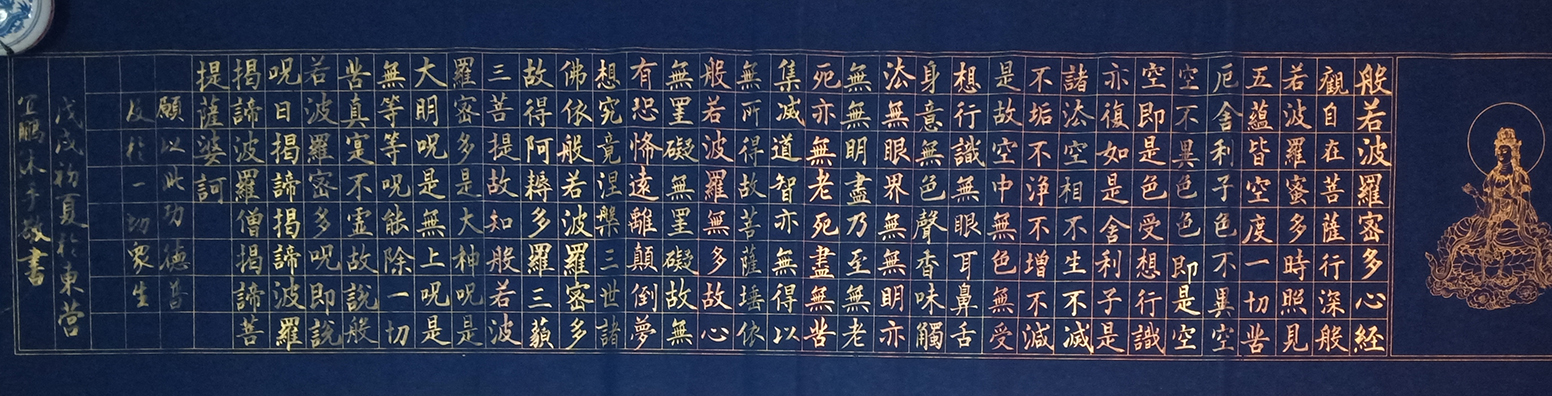 般若波羅密多心経
觀自在菩薩行深般
若波羅蜜多時照見
五蘊皆空度一切苦
厄舍利子色不異空
空不異色色即是空
空即是色受想行識
亦復如是舍利子是
諸法空相不生不滅
不垢不浄不增不減
是故空中無色無受
想行識無眼耳鼻舌
身意無色聲香味觸
法無眼界無無明亦
無無明盡乃至無老
死亦無老死盡無苦
集滅道智亦無得以
無所得故菩薩埵依
般若波羅無多故心
無罣礙無罣礙故無
有恐怖遠離顛倒夢
想究竟涅槃三世諸
佛依般若波羅密多
故得阿耨多羅三藐
三菩提故知般若波
羅密多是大神呪是
大明呪是無上呪是
無等等呪能除一切
苦真寔不虛故說般
若波羅密多呪即說
呪曰揭諦揭諦波羅
揭諦波羅僧揭諦菩
提薩婆訶
願以此功德普
及於一切眾生
戊戌初夏於東营
宜鵬沐手敬書